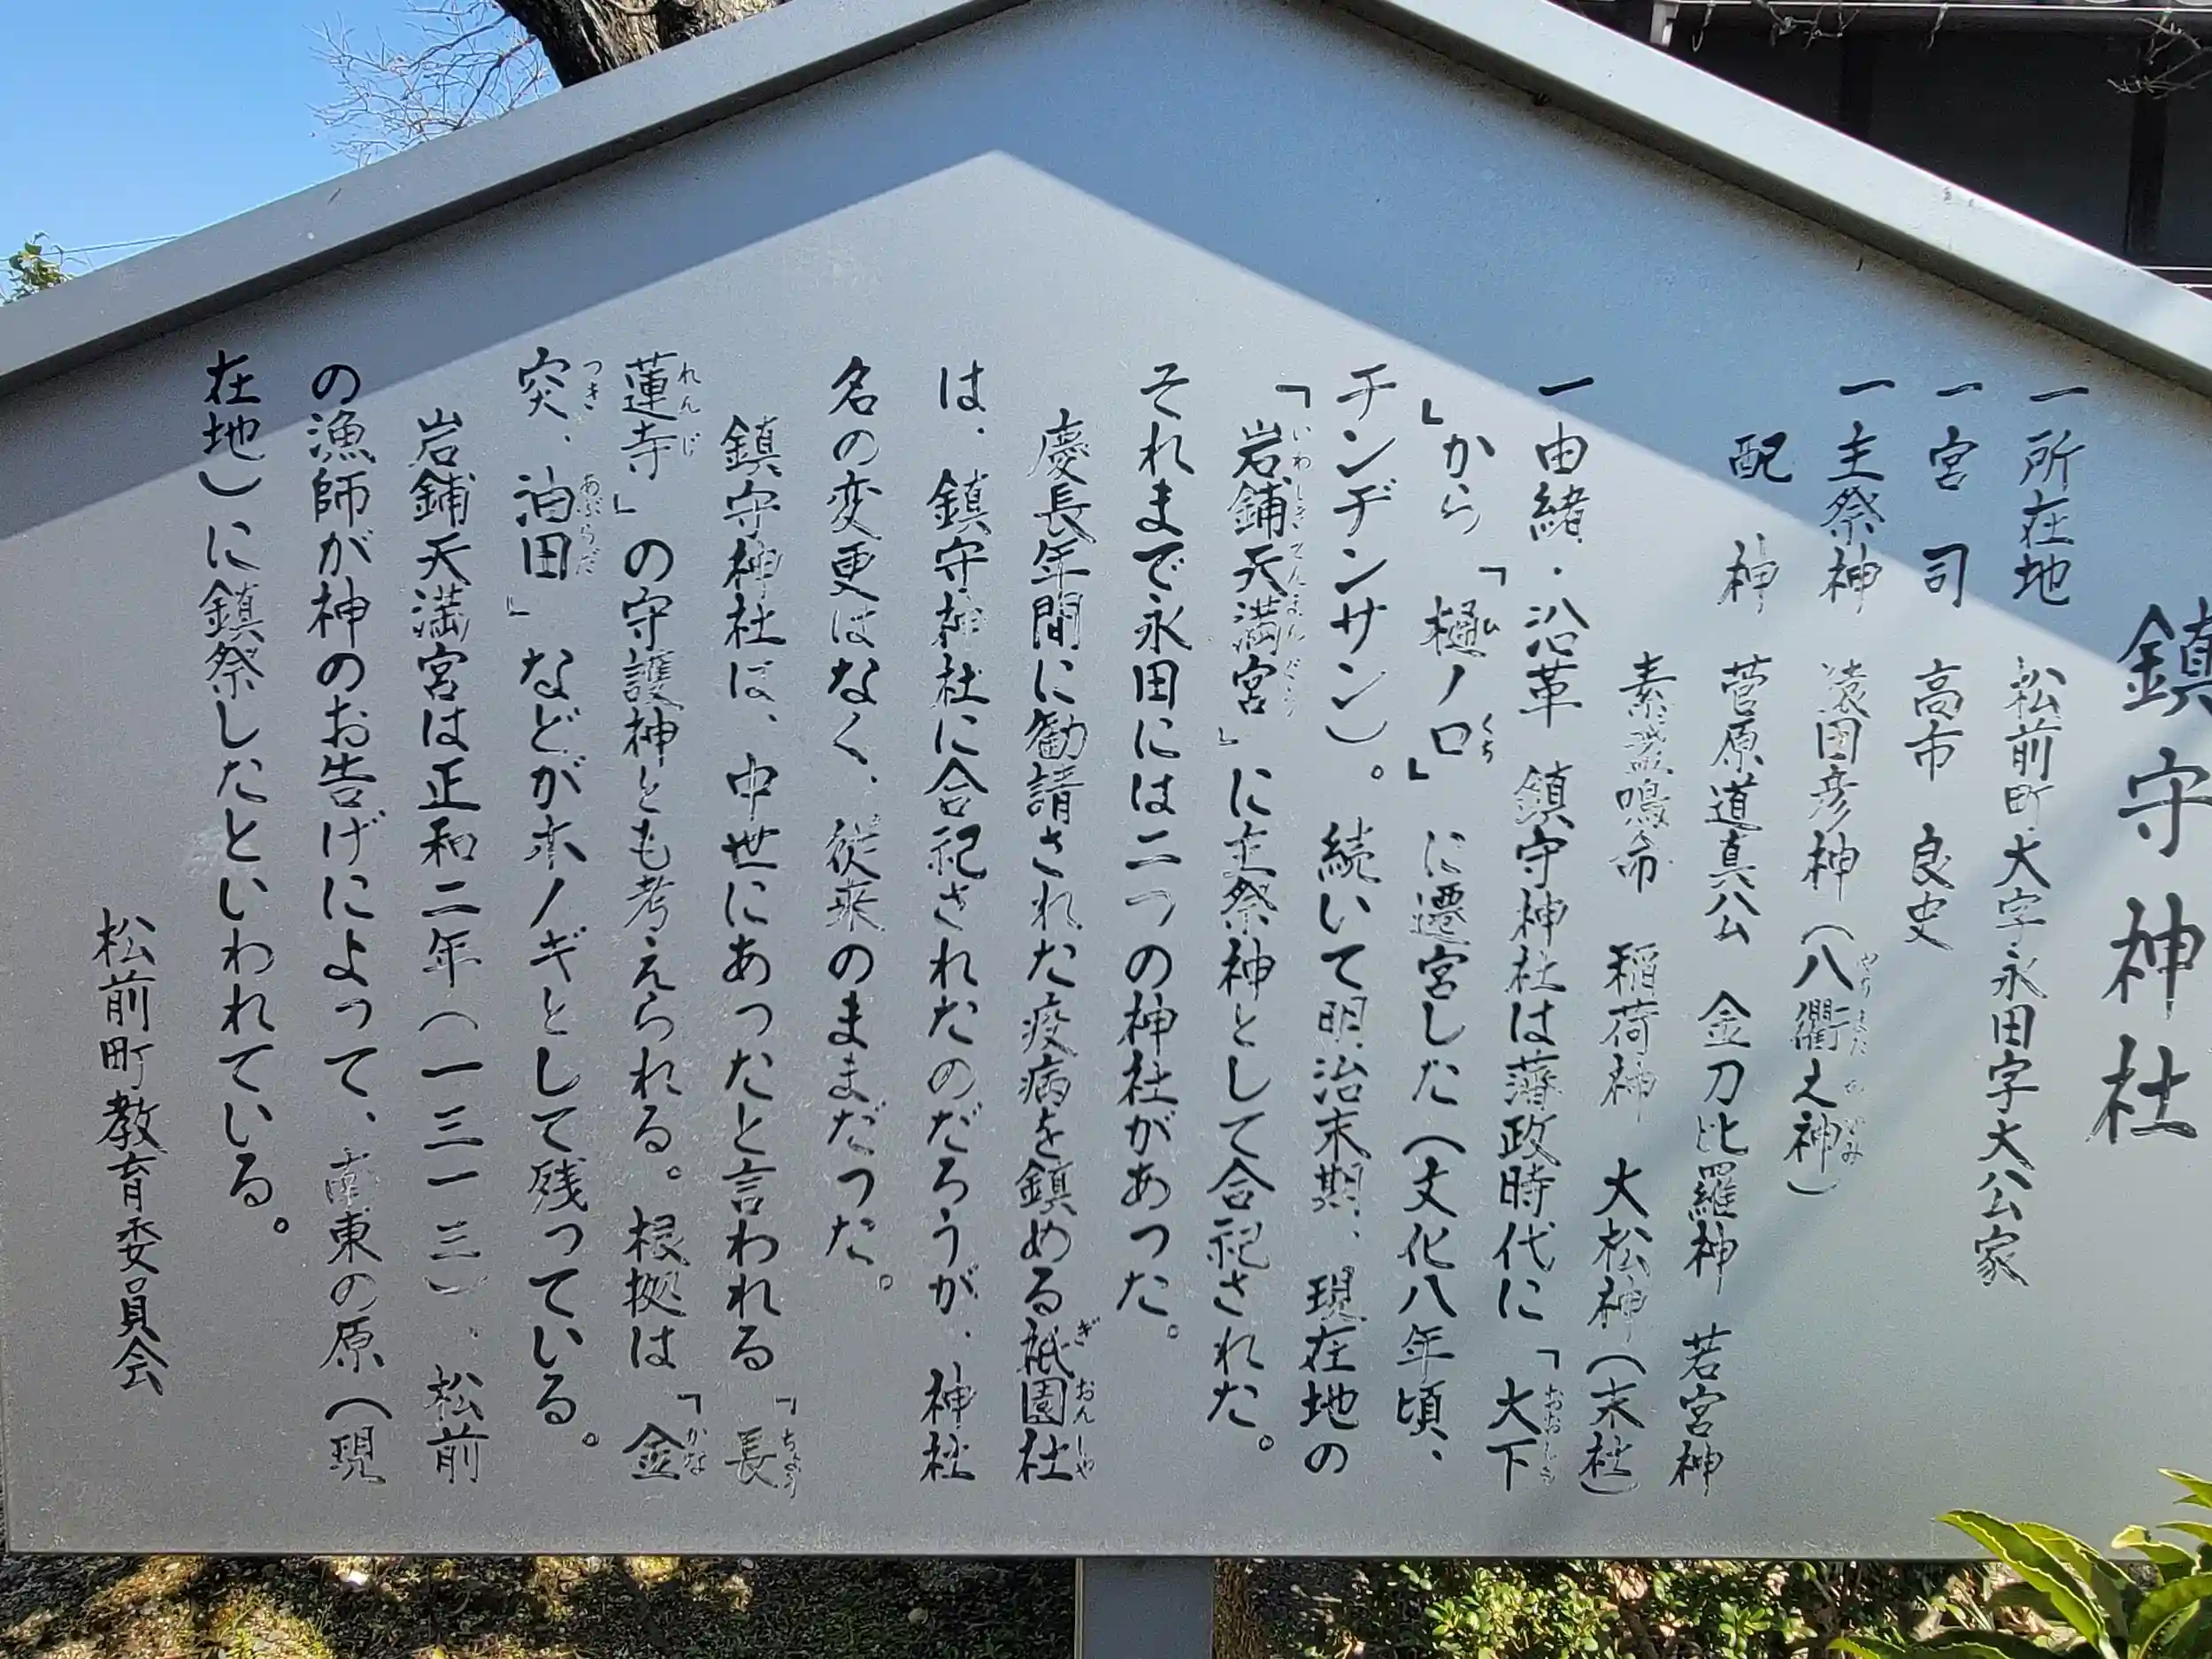 鎮守神社
一所在地 松前町大字永田字大公家
一宮司 高市 良史
一主祭神 猿田彦神(八衢之神)
配神 菅原道真公 金刀比羅神 若宮神
素盞鳴命 稲荷神 大松神(末社)
一由緒・沿革 鎮守神社は藩政時代に「大下
」から「樋ノ口」に遷宮した(文化八年頃、
チンヂンサン)。続いて明治末期、現在地の
「岩鋪天満宮」に主祭神として合祀された。
それまで永田には二つの神社があった。
慶長年間に勧請された疫病を鎮める祇園社
は、鎮守神社に合祀されたのだろうが、神社
名の変更はなく、従来のままだった。
鎮守神社は、中世にあったと言われる「長
蓮寺」の守護神とも考えられる。根拠は「金
突、油田」などがホノギとして残っている。
岩鋪天満宮は正和二年(一三一三)、松前
の漁師が神のお告げによって、南東の原(現
在地)に鎮祭したといわれている。
松前町教育委員会